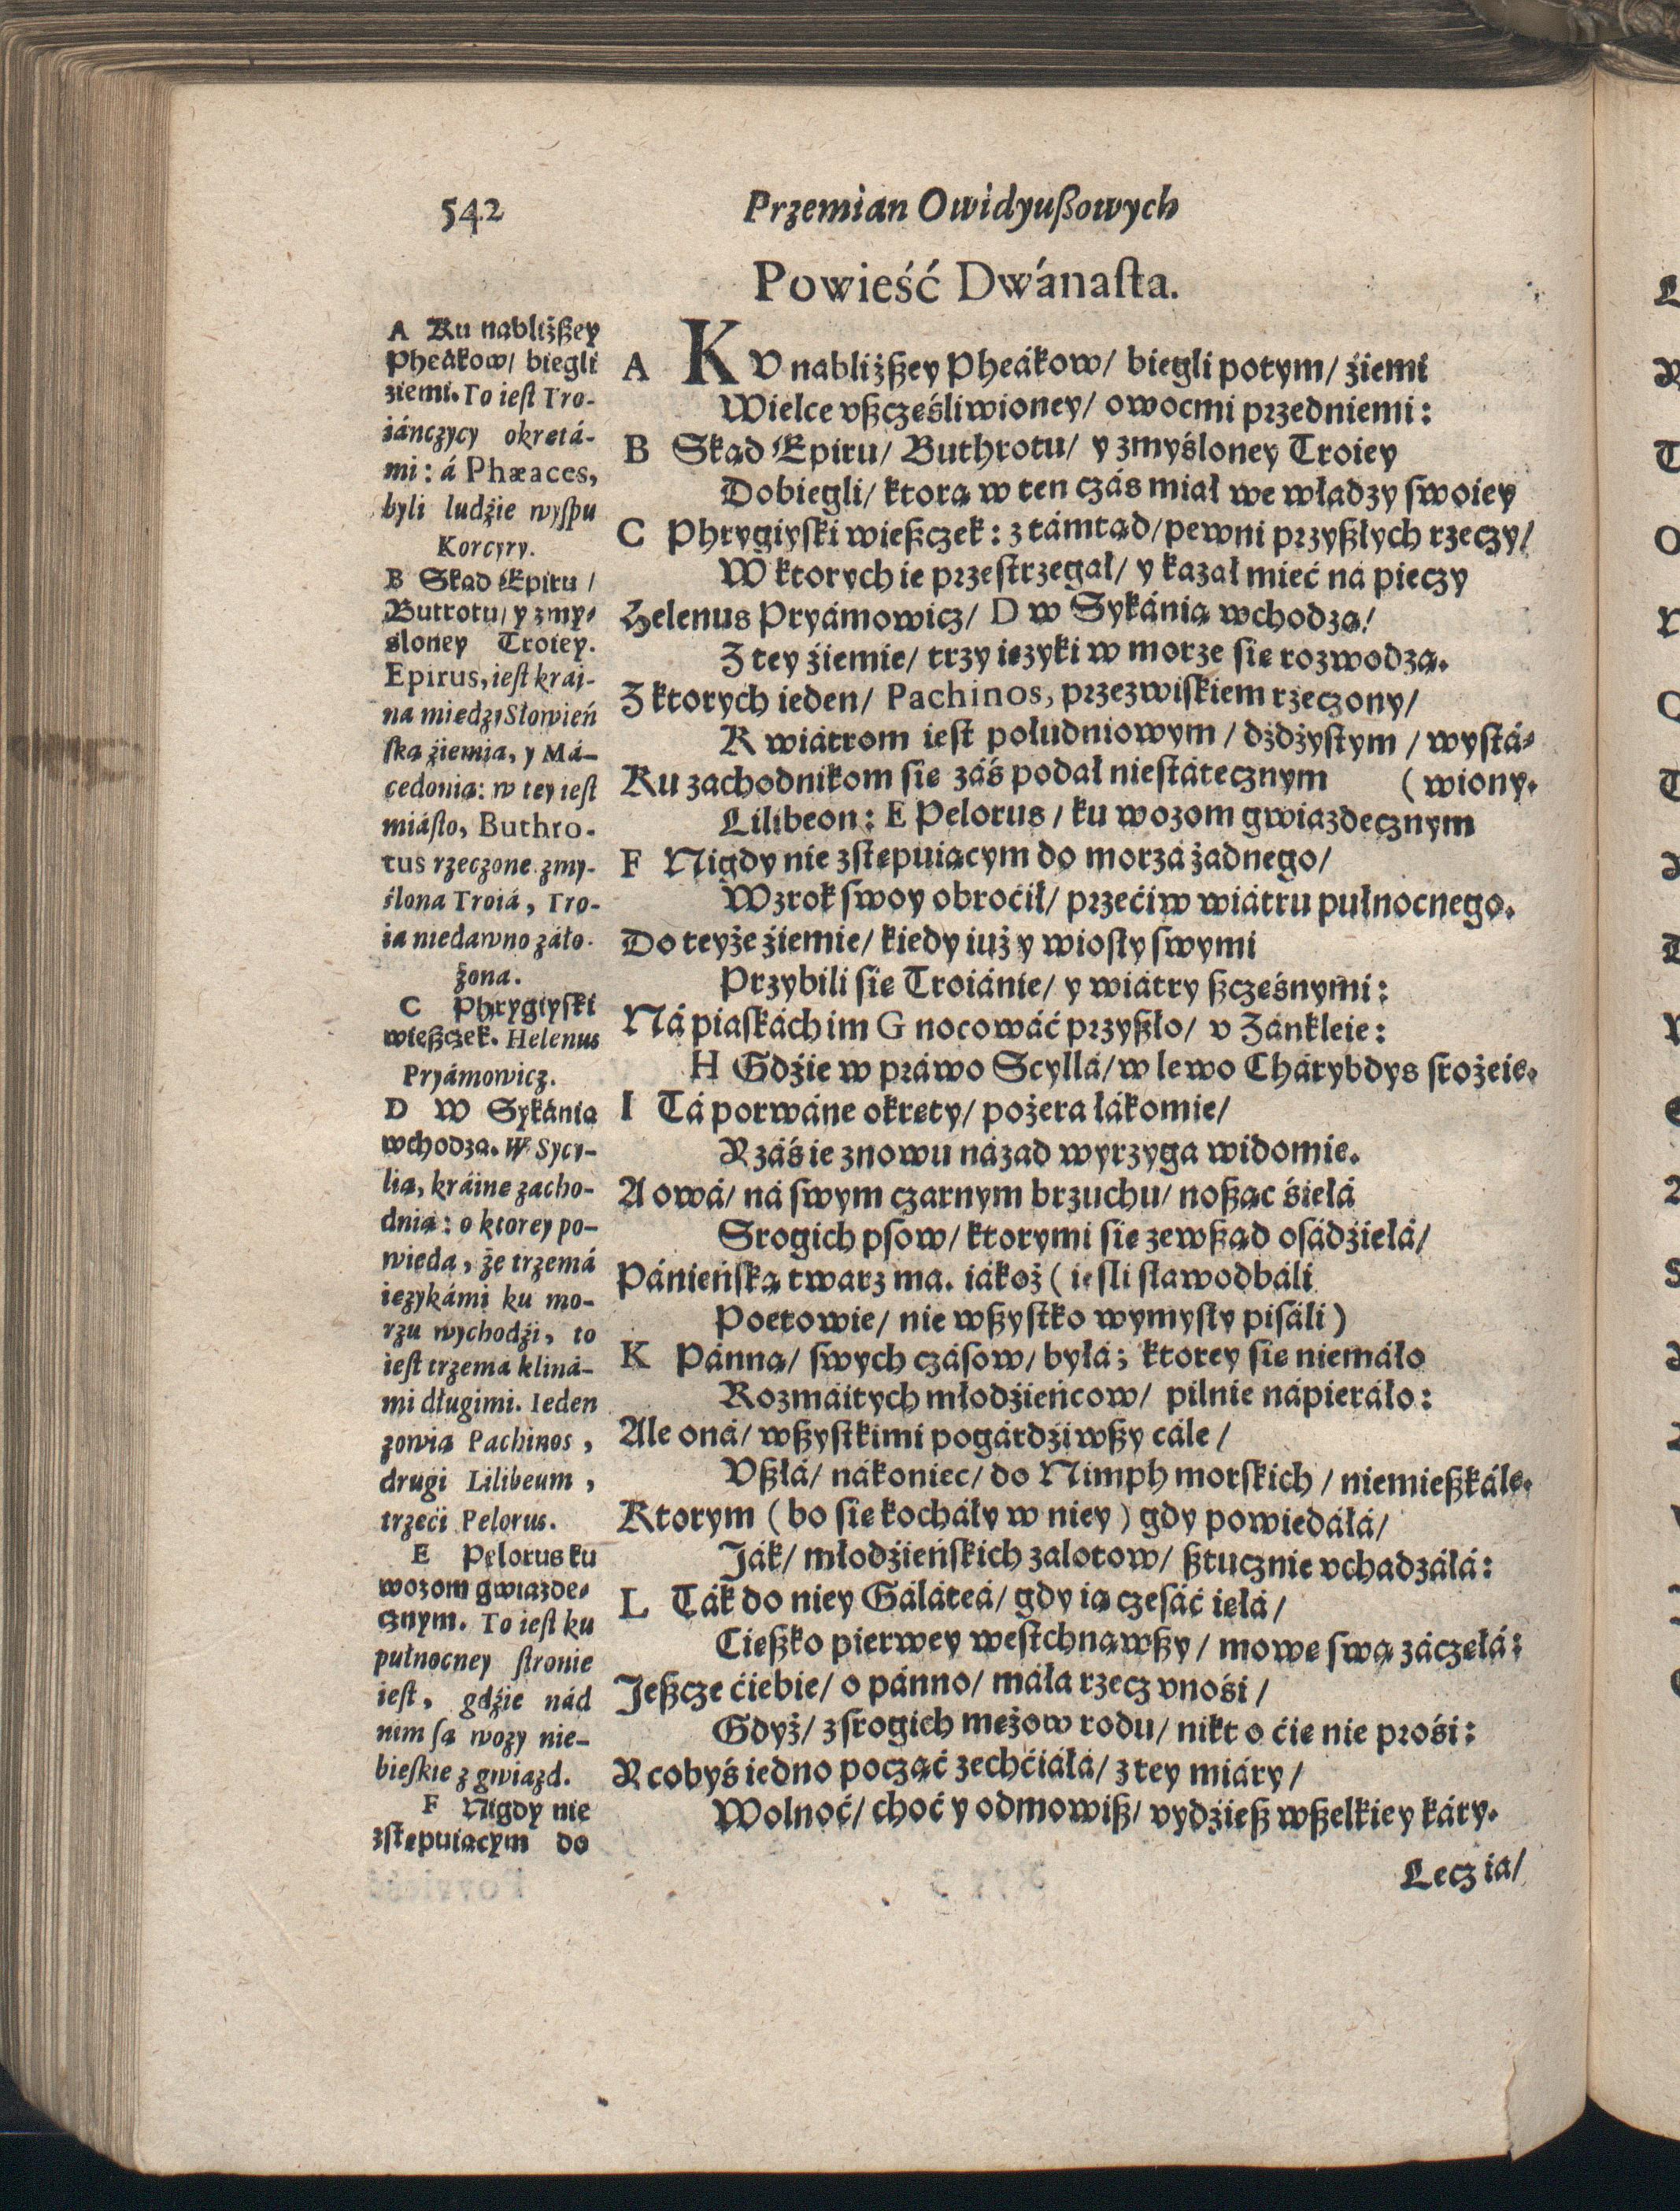 542
Przemian Owidyußowych
Powieść Dwánaſta.
A Ku nabliżßey
Pheákow/ biegli
ziemi. To ieſt Tro-
iánczycy okretá-
mi: á Phæaces,
byli ludźie wyſpu
Korcyry.
B Skąd Epiru /
Butrotu/ y zmy-
sloney Troiey.
Epirus, ieſt krai-
na miedzy Słowień
ſką źiemią, y Má-
cedonią: w tey ieſt
miáſto, Buthro-
tus rzeczone. zmy-
ślona Troiá, Tro-
ia niedawno záło-
żona.
C Phrygiyſki
wießczek. Helenus
Pryámowicz.
D W Sykánią
wchodzą. W Sycy-
lią, kráine zacho-
dnią: o ktorey po-
wiedą, że trzemá
iezykámi ku mo-
rzu wychodźi, to
ieſt trzema kliná-
mi długimi. Ieden
zowią Pachinos,
drugi Lilibeum,
trzeći Pelorus.
E Pelorus ku
wozom gwiazde-
cznym. To ieſt ku
pułnocney ſtronie
ieſt, gdźie nád
nim ſą wozy nie-
bieſkie z gwiazd.
F Nigdy nie
zſtepuiącym do
A KV nabliżßey Pheákow/ biegli potym/ źiemi
Wielce vßcześliwioney/ owocmi przedniemi:
B Skąd Epiru/ Buthrotu/ y zmyśloney Troiey
Dobiegli/ ktorą w ten czás miał we władzy ſwoiey
C Phrygiyſki wießczek: z támtąd/ pewni przyßłych rzeczy/
W ktorych ie przeſtrzegał/ y kazał mieć ná pieczy
Helenus Pryámowicz/ D w Sykánią wchodzą/
Z tey źiemie/ trzy iezyki w morze ſie rozwodzą.
Z ktorych ieden/ Pachinos, przezwiſkiem rzeczony/
K wiátrom ieſt południowym / dżdżyſtym / wyſtá-
Ku zachodnikom ſie záś podał nieſtátecznym (wiony.
Lilibeon: E Pelorus / ku wozom gwiazdecznym
F Nigdy nie zſtepuiącym do morzá żadnego/
Wzrok ſwoy obroćił/ przećiw wiátru pułnocnego.
Do teyże źiemie/ kiedy iuż y wioſły ſwymi
Przybili ſie Troiánie/ y wiátry ßcześnymi:
Ná piaſkách im G nocowáć przyßło/ v Zánkleie:
H Gdźie w práwo Scyllá/ w lewo Chárybdys ſrożeie.
I Tá porwáne okrety/ pożera łákomie/
A záś ie znowu názad wyrzyga widomie.
A owá/ ná ſwym czarnym brzuchu/ noßąc śiełá
Srogich pſow/ ktorymi ſie zewßąd oſádźiełá/
Pánieńſką twarz ma. iákoż ( ieſli ſławodbáli
Poetowie/ nie wßyſtko wymyſły piſáli )
K Pánną/ ſwych czáſow/ byłá; ktorey ſie niemáło
Rozmáitych młodźieńcow/ pilnie nápieráło:
Ale oná/ wßyſtkimi pogárdźiwßy cále /
Vßłá/ nákoniec/ do Nimph morſkich / niemießkále.
Ktorym ( bo ſie kocháły w niey ) gdy powiedáłá/
Ják/ młodźieńſkich zalotow/ ßtucznie vchadzáłá:
L Ták do niey Gáláteá/ gdy ią czeſáć iełá /
Cießko pierwey weſtchnąwßy / mowe ſwą záczełá:
Jeßcze ćiebie/ o pánno/ máła rzecz vnośi /
Gdyż/ z ſrogich meżow rodu/ nikt o ćie nie prośi:
A cobyś iedno począć zechćiáłá/ z tey miáry /
Wolnoć/ choć y odmowiß/ vydźieß wßelkiey káry.
Lecz ia/